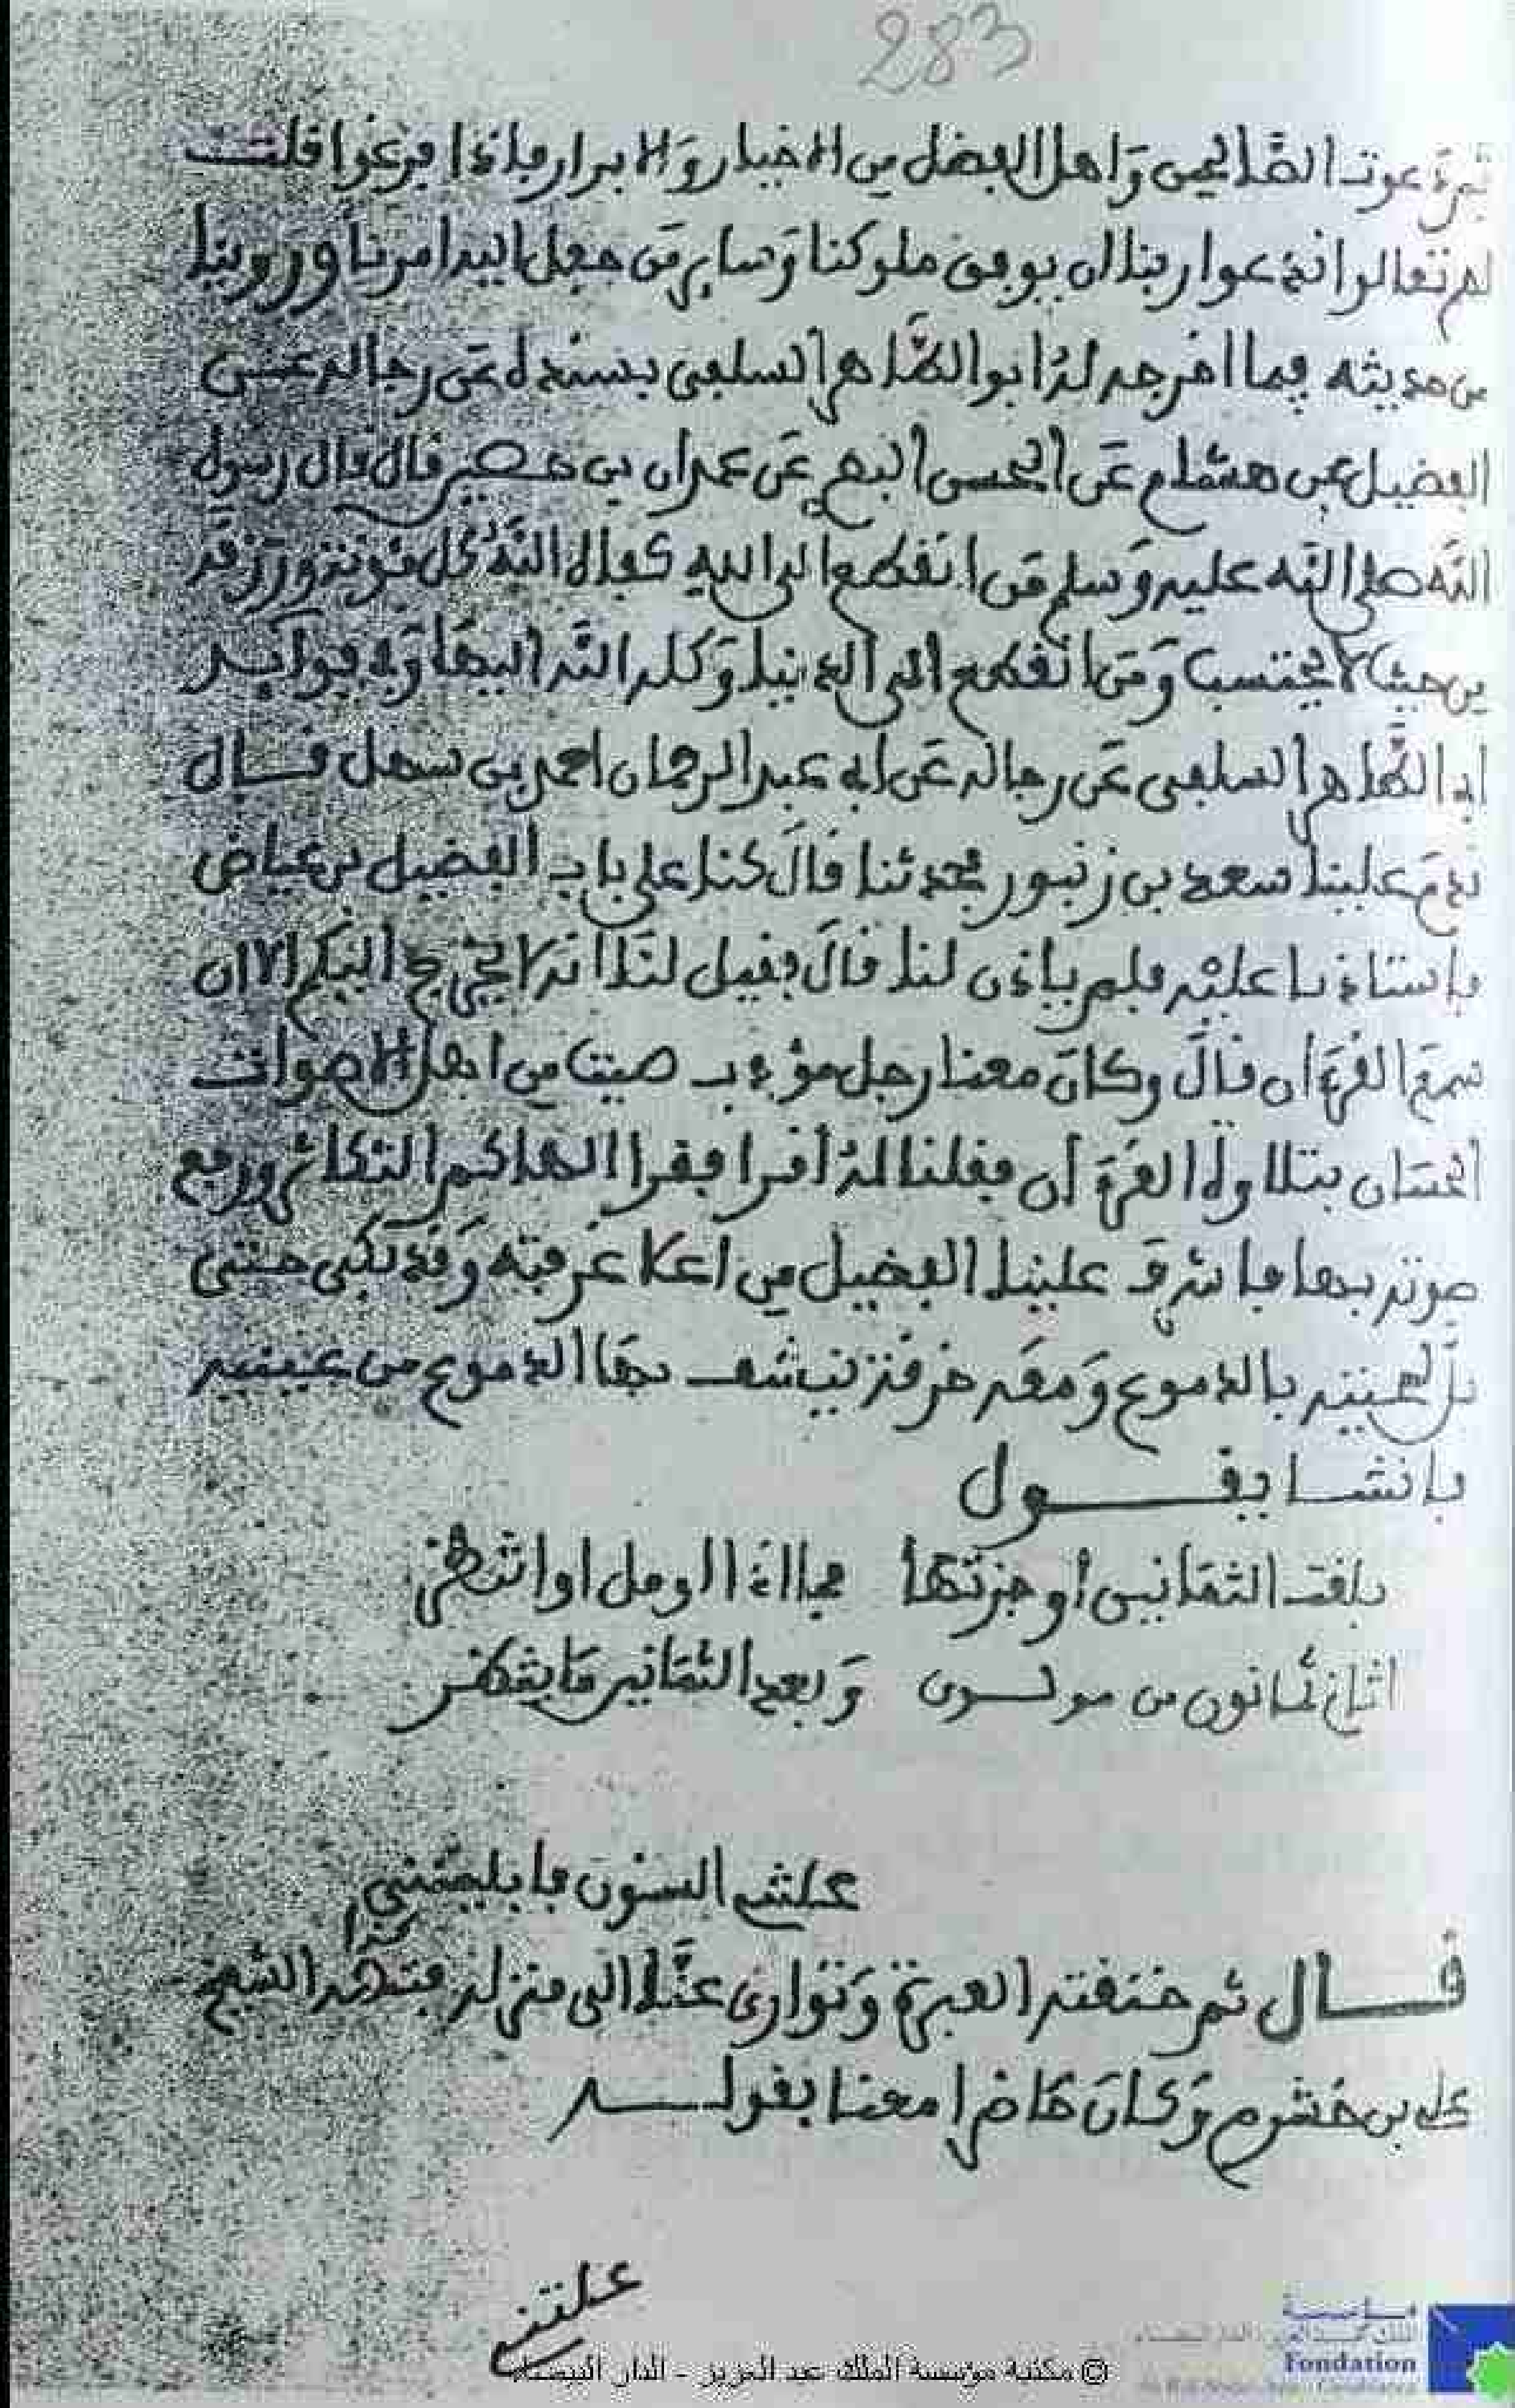 283
دعوت الصالحين وَاهل الفضل من الاخيار وَالابرار فاذا فرغوا قلت
لهم تعالوا ندعوا ربنا ان يوفق ملوكنا وَساير مَن جعل اليه امرنا وروينا
من حديثه فيما اخرجه لهُ ابو الطاهر السلفي بسنده عَن رجاله عن
الفضيل عن هشام عَن الحسن البصري عَن عمران بن حصين قال قال رسول
الله صلى الله عليه وَسلم مَن انقطع الى الله كفاه اللهُ كل مؤنته ورزقه
من حيث لا يحتسب وَمَن انقطع الى الدنيا وَكله الله اليها وَفي فوايد
ابي الطاهر السلفي عَن رجاله عَن ابي عبد الرحمان احمد بن سهل قال
قدمَ علينا سعد بن زنبور فحدثنا قالَ كنا على باب الفضيل بن عياض
فاستاذنا عليْه فلم ياذن لنا قالَ فقيل لنا انه لا يخرج اليكم الا ان
سمعَ القرءان قالَ وكانَ معنا رجل مؤدب صيت من اهل الاصوات
الحسان بتلاوة القرءان فقلنا لهُ اقرا فقرا الهاكم التكاثر ورفع
صوته بها فاشرف علينا الفضيل من اعلا غرفته وَقد بكى حتى
بل لحيته بالدموع وَمعَه خرقة ينشف بها الدموع من عينيه
فانشا يقول
بلغت الثمانين أو جزتها فماذا اومل او انتظر
اتاني ثمانون من مولدي وَبعد الثمانين مَا ينتظر
علتني السنون فابليتني
كذا
قال ثم خنقته العبرة وَتوارى عنا الى منزله فتممه الشيخ
علي بن خشرم وَكانَ حَاضرا معنا بقوله
علتني
© مكتبة مؤسسة الملك عبد العزيز - الدار البيضاء
Fondation